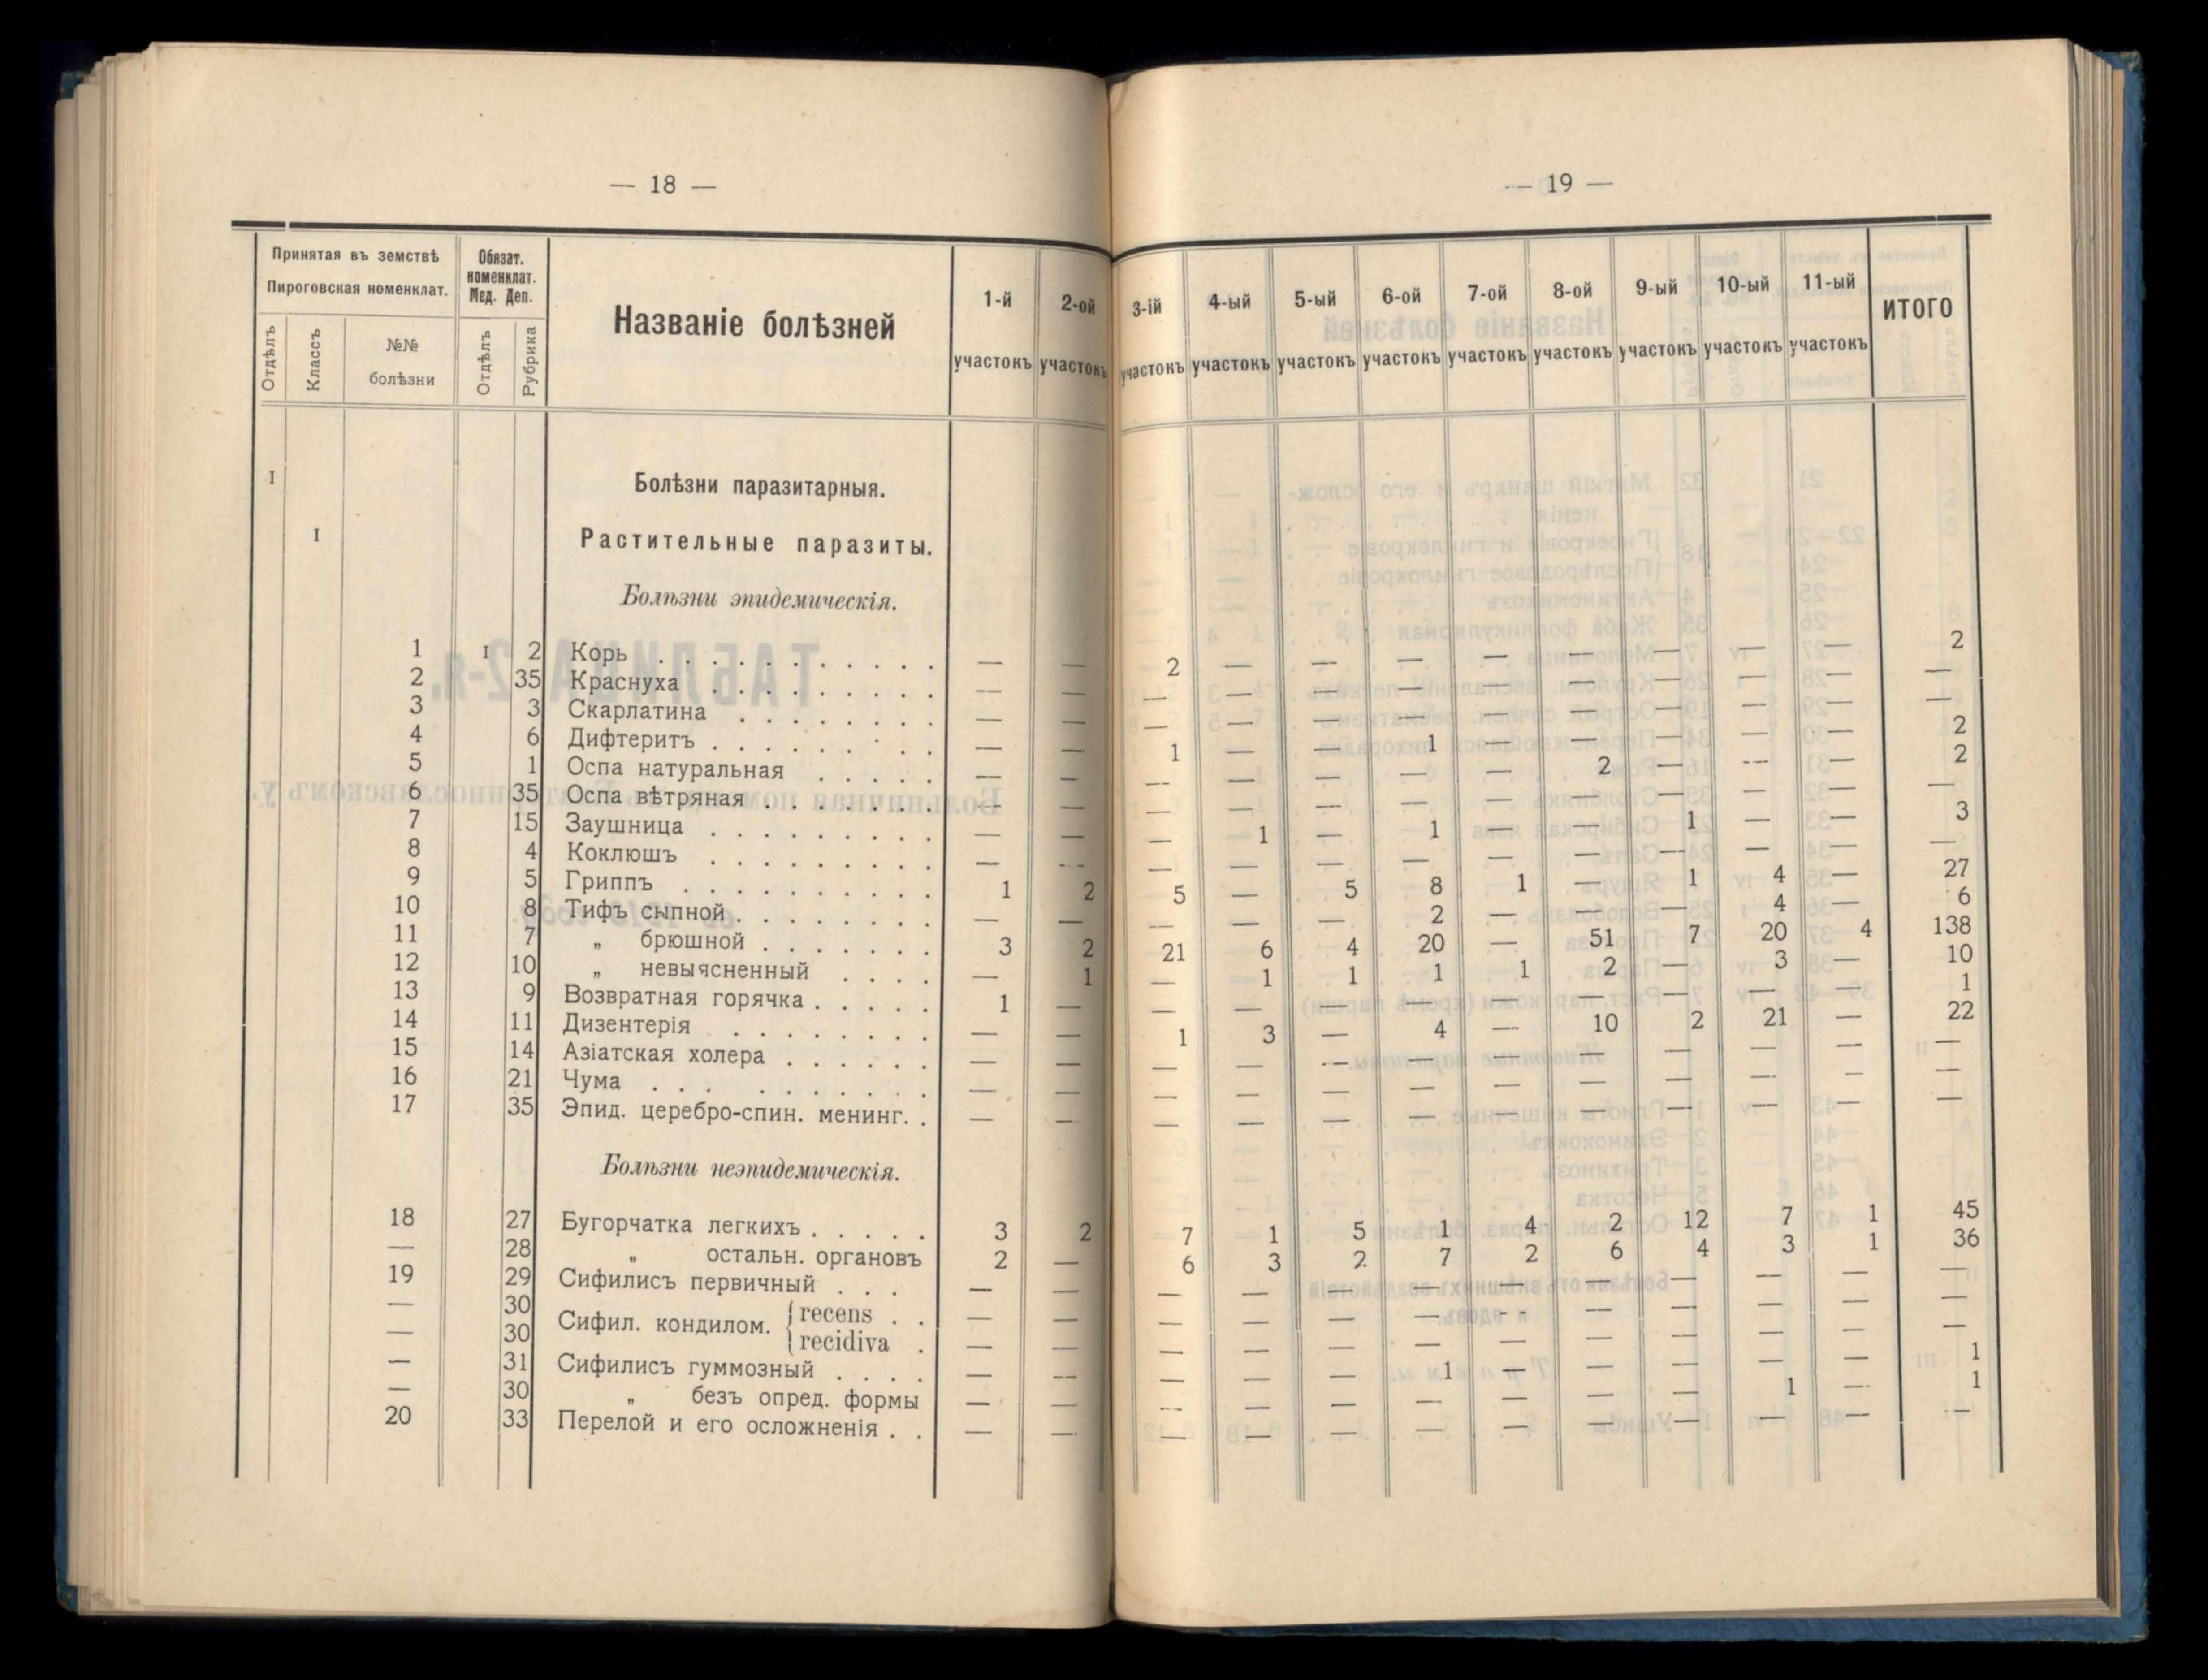 — 18 —
— 19 —
Принятая въ земствѣ Пироговская номенклат. Обязат. номенклат. Мед. Деп. Названіе болѣзней 1-й участокъ 2-ой участокъ 3-ій участокъ 4-ый участокъ 5-ый участокъ 6-ой участокъ 7-ой участокъ 8-ой участокъ 9-ый участокъ 10-ый участокъ 11-ый участокъ ИТОГО
Отдѣлъ Классъ №№ болѣзни Отдѣлъ Рубрика
I Болѣзни паразитарныя.
I Растительные паразиты.
Болѣзни эпидемическія.
1 I 2 Корь . . . . . . . . . . . — — 2 — — — — — — — — 2
2 35 Краснуха . . . . . . . . . — — — — — — — — — — — —
3 3 Скарлатина . . . . . . . . — — — — — — — — — — — —
4 6 Дифтеритъ . . . . . . . . . — — 1 — — 1 — — — — — 2
5 1 Оспа натуральная . . . . . — — — — — — — 2 — — — 2
6 35 Оспа вѣтряная . . . . . . . — — — — — — — — — — — —
7 15 Заушница . . . . . . . . . — — — 1 — 1 — — 1 — — 3
8 4 Коклюшъ . . . . . . . . . — — — — — — — — — — — —
9 5 Гриппъ . . . . . . . . . . 1 2 5 — 5 8 1 — 1 4 — 27
10 8 Тифъ сыпной . . . . . . . . — — — — — 2 — — — 4 — 6
11 7 „ брюшной . . . . . . . 3 2 21 6 4 20 — 51 7 20 4 138
12 10 „ невыясненный . . . . — 1 — 1 1 1 1 2 — 3 — 10
13 9 Возвратная горячка . . . . . 1 — — — — — — — — — — 1
14 11 Дизентерія . . . . . . . . — — 1 3 — 4 — 10 2 21 — 22
15 14 Азіатская холера . . . . . . — — — — — — — — — — — —
16 21 Чума . . . . . . . . . . — — — — — — — — — — — —
17 35 Эпид. церебро-спин. менинг. . — — — — — — — — — — — —
Болѣзни неэпидемическія.
18 27 Бугорчатка легкихъ . . . . . 3 2 7 1 5 1 4 2 12 7 1 45
— 28 „ остальн. органовъ 2 — 6 3 2 7 2 6 4 3 1 36
19 29 Сифилисъ первичный . . . — — — — — — — — — — — —
— 30 Сифил. кондилом. { recens . . — — — — — — — — — — — —
— 30 recidiva . — — — — — — — — — — — —
— 31 Сифилисъ гуммозный . . . . — — — — — 1 — — — — — 1
— 30 „ безъ опред. формы — — — — — — — — — 1 — 1
20 33 Перелой и его осложненія . . — — — — — — — — — — — —